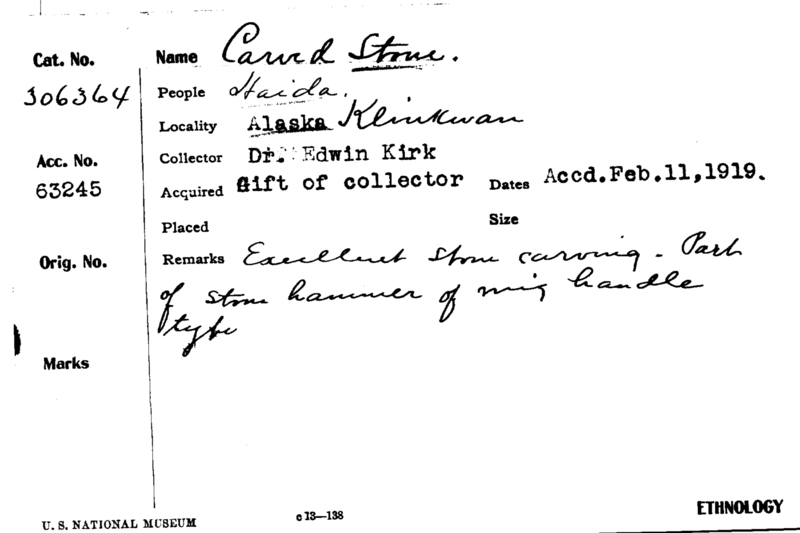 Cat. No. Name Carved Stone.
306364 People Haida.
Locality Alaska Klinkwan
Acc. No. Collector Dr. Edwin Kirk
63245 Acquired Gift of collector Dates Accd.Feb.11,1919.
Placed Size
Orig. No. Remarks Excellent stone carving - Part
of stone hammer of handle
type
Marks
U. S. NATIONAL MUSEUM c 13—138 ETHNOLOGY